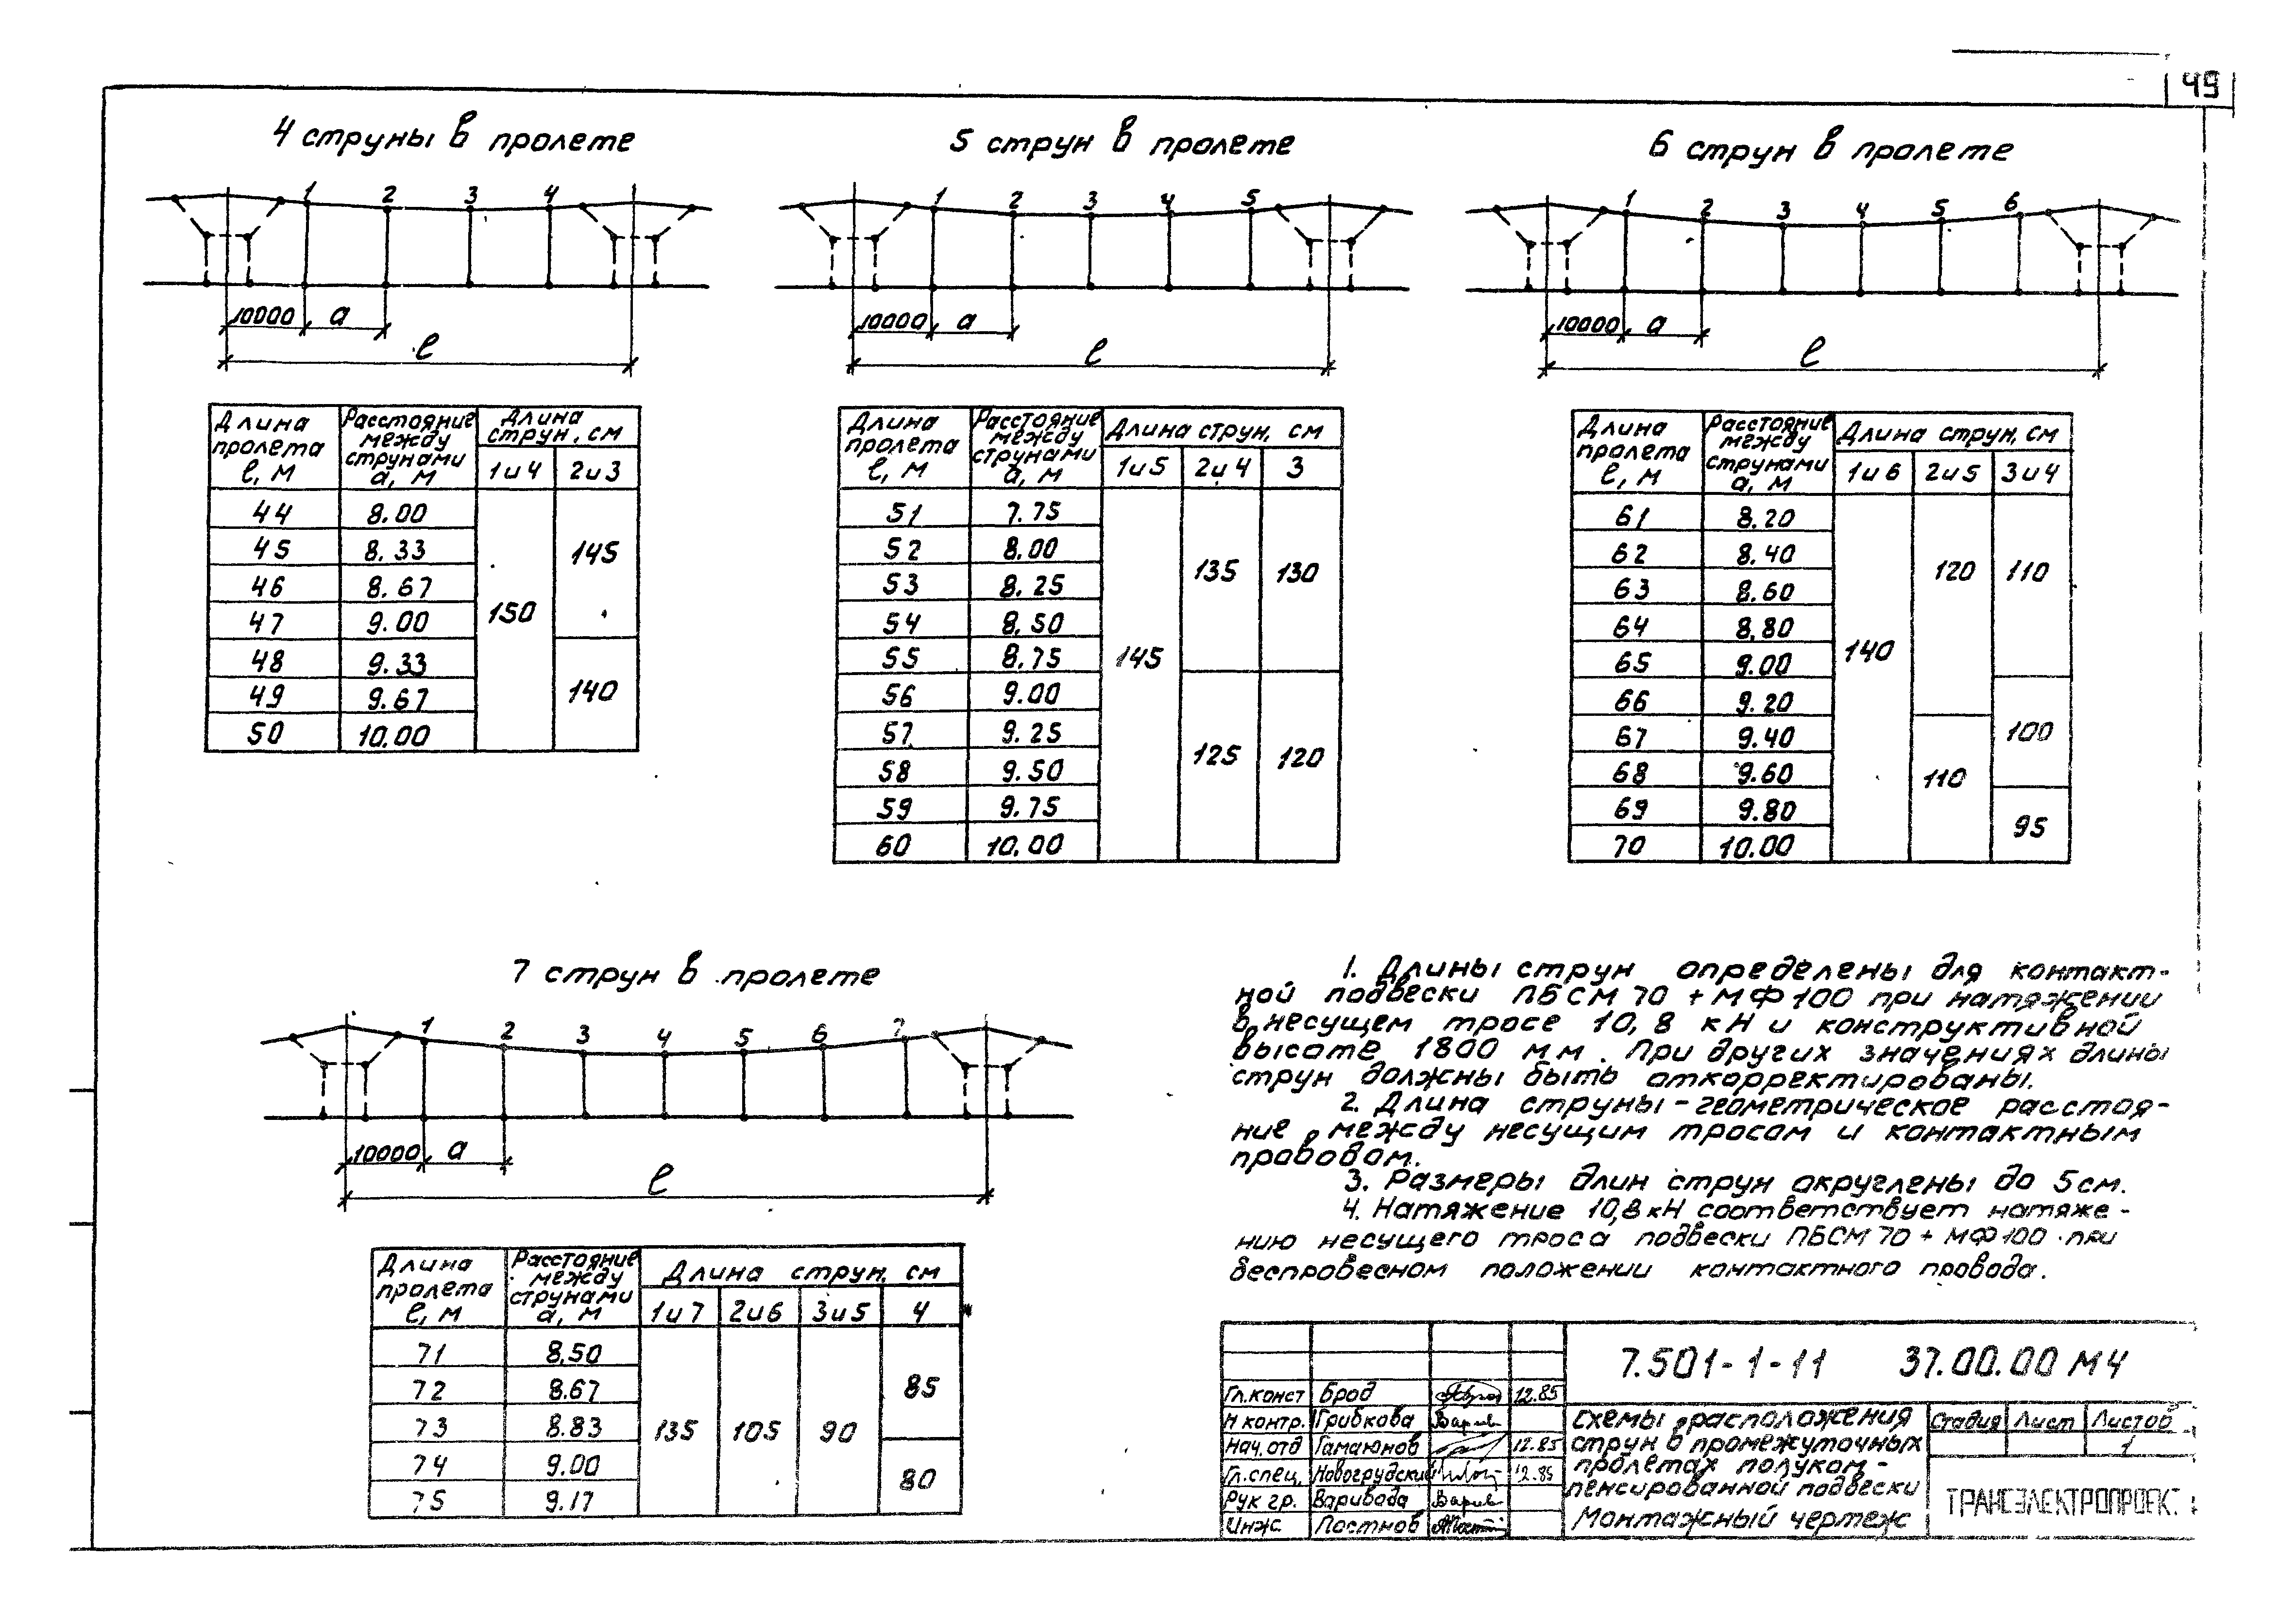 49
4 струны в пролете
1 2 3 4
10000 а
l
Длина пролета l, м
Расстояние между струнами а, м
Длина струн, см
1и4 2и3
44 8.00
45 8.33
46 8.67
47 9.00
48 9.33
49 9.67
50 10.00
150
145
140
5 струн в пролете
1 2 3 4 5
10000 а
l
Длина пролета l, м
Расстояние между струнами а, м
Длина струн, см
1и5 2и4 3
51 7.75
52 8.00
53 8.25
54 8.50
55 8.75
56 9.00
57 9.25
58 9.50
59 9.75
60 10.00
145
135 130
125 120
6 струн в пролете
1 2 3 4 5 6
10000 а
l
Длина пролета l, м
Расстояние между струнами а, м
Длина струн, см
1и6 2и5 3и4
61 8.20
62 8.40
63 8.60
64 8.80
65 9.00
66 9.20
67 9.40
68 9.60
69 9.80
70 10.00
140
120 110
100
110
95
7 струн в пролете
1 2 3 4 5 6 7
10000 а
l
Длина пролета l, м
Расстояние между струнами а, м
Длина струн, см
1и7 2и6 3и5 4
71 8.50
72 8.67
73 8.83
74 9.00
75 9.17
135 105 90
85
80
1. Длины струн определены для контакт-
ной подвески ПБСМ 70 + МФ 100 при натяжении
в несущем тросе 10,8 кН и конструктивной
высоте 1800 мм. При других значениях длины
струн должны быть откорректированы.
2. Длина струны - геометрическое расстоя-
ние между несущим тросом и контактным
проводом.
3. Размеры длин струн округлены до 5 см.
4. Натяжение 10,8 кН соответствует натяже-
нию несущего троса подвески ПБСМ 70 + МФ 100 при
беспровесном положении контактного провода.
7.501-1-11 37.00.00 МЧ
Гл.конст Брод 12.85
Н контр. Грибкова
Нач.отд Гамаюнов 12.85
Гл.спец. Новогрудский 12.85
Рук гр. Варивода
Инж. Постнов
Схемы расположения
струн в промежуточных
пролетах полуком-
пенсированной подвески
Монтажный чертеж
Стадия Лист Листов
1
ТРАНСЭЛЕКТРОПРОЕКТ